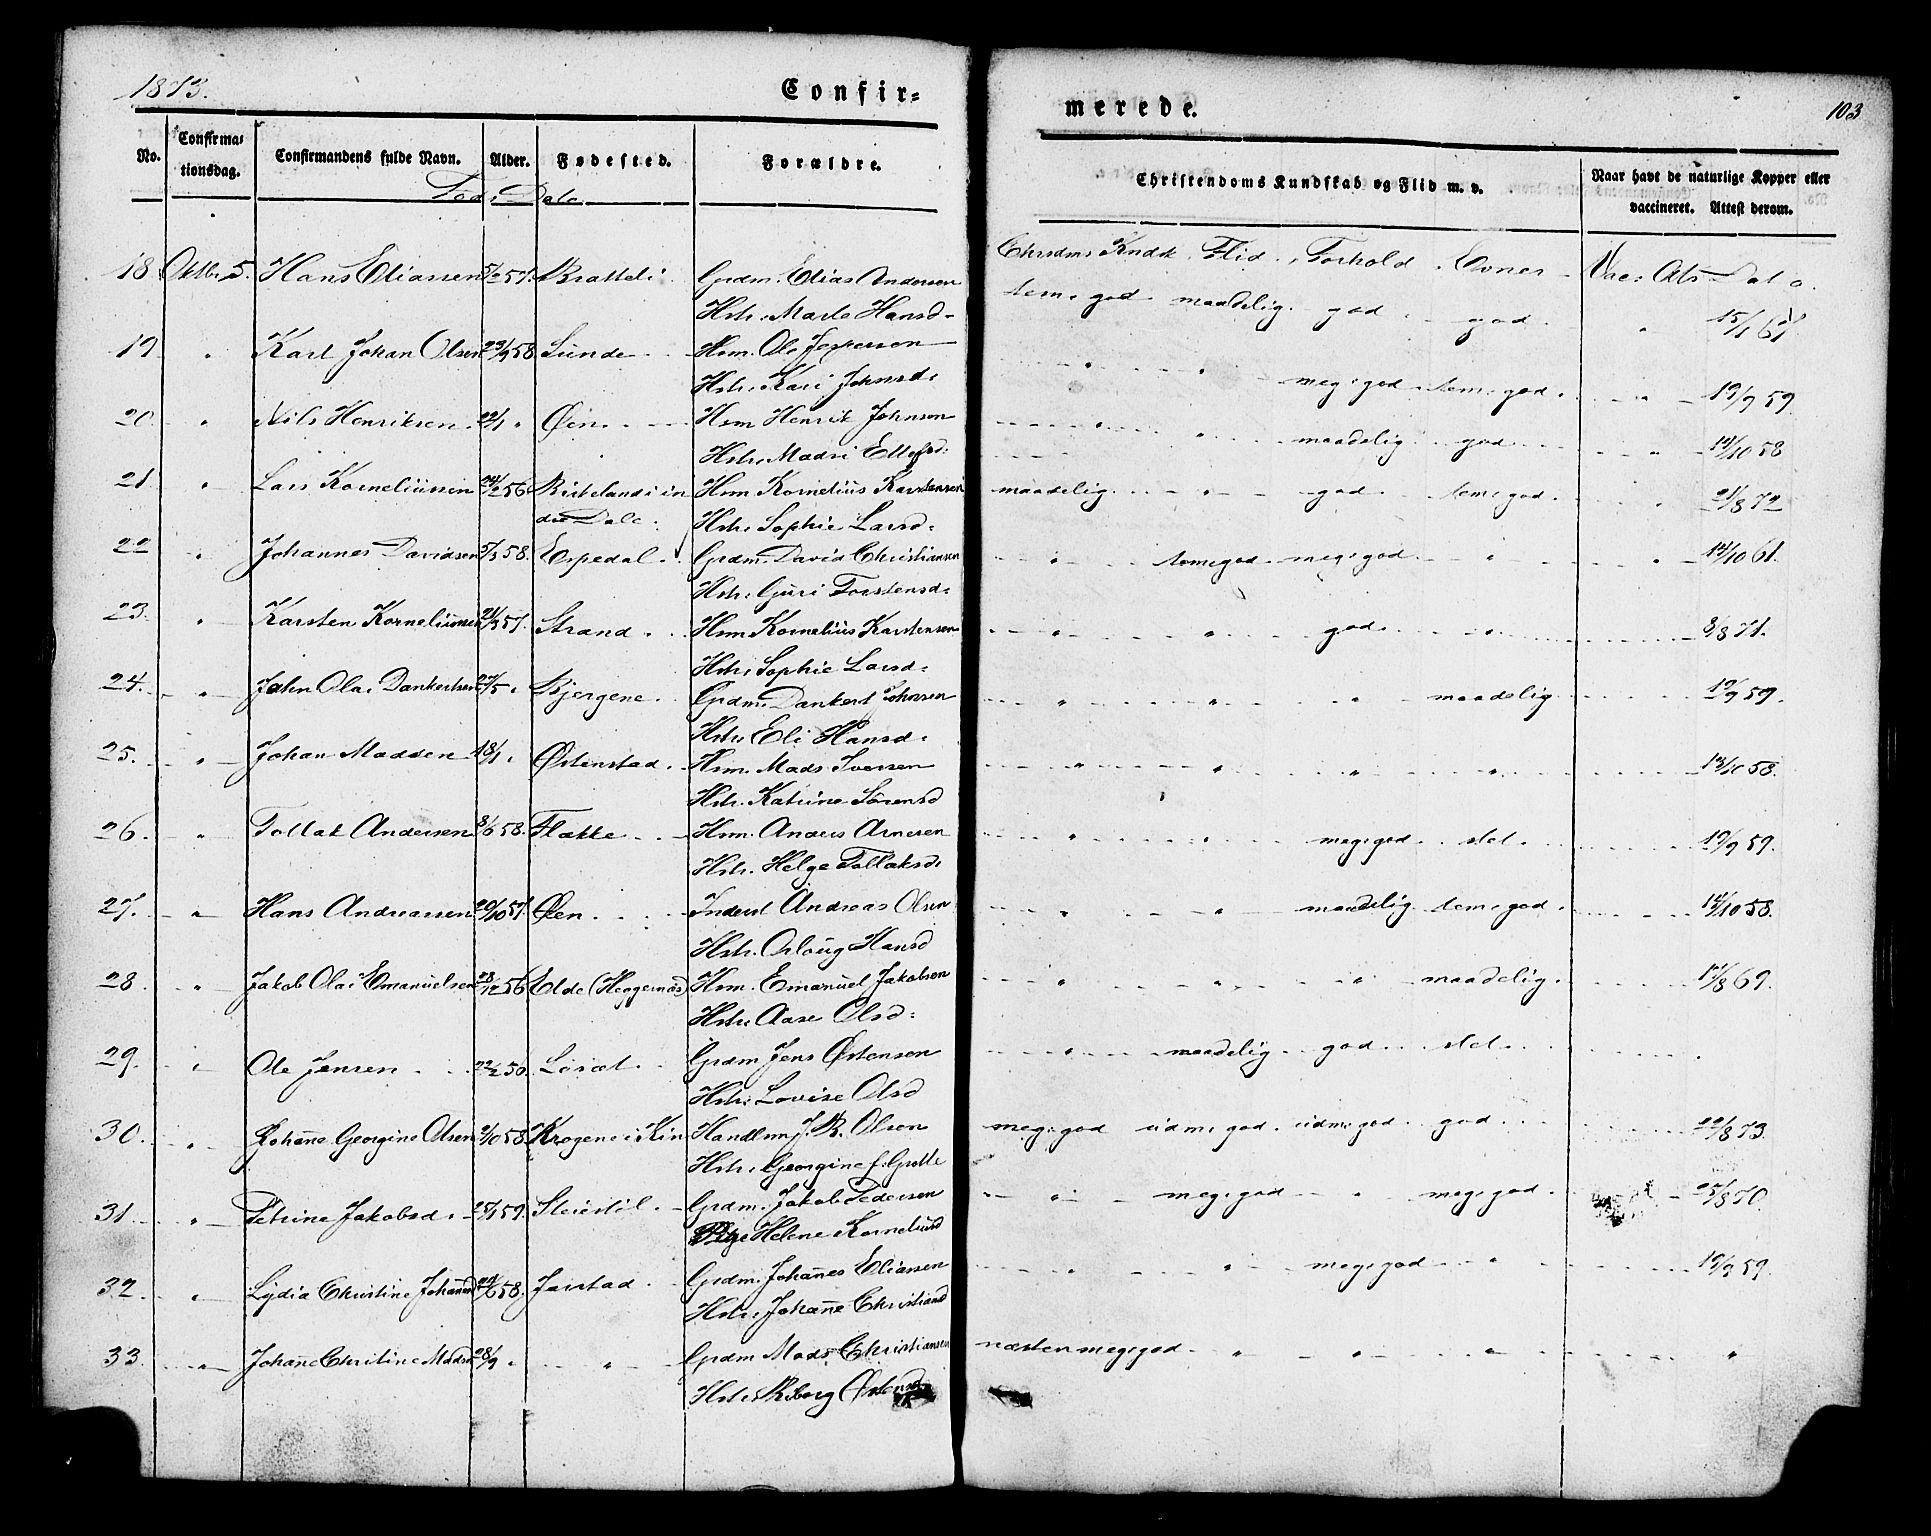 1873.
Confir=
merede.
103
No.
Confirma=
tionsdag.
Confirmandens fulde Navn.
Alder.
Fødested.
Forældre.
Christendoms Kundskab og Flid m. v.
Naar havt de naturlige Kopper eller
vaccineret. Attest derom.
Dale
18 Oktbr 5. Hans Eliassen 5/2 57. Bratteli. Grdm. Elias Andersen
Chrsdms Kndsk. Flid. Forhold. Evner. Vac. Ats Dato.
Hstr. Marte Hansd.
tem. god. maadelig. god. god. " 15/1 61
19 " Karl Johan Olsen 23/9 58 Sunde. Hsm. Ole Jespersen
Hstr. Kari Johnsd.
" " meg. god. tem. god. " 19/9 59.
20. " Nils Henriksen. 22/1 " Øien. Hsm Henrik Johnson
Hstr. Madsi
" " maadelig. god. " 14/10 58
21. " Lars Korneliussen 24/2 56 i in Hsm Kornelius Karstensen
dre Dale. Hstr. Sophie Larsd.
maadelig. " god. tem. god. " 21/8 72
22 " Johannes Davidsen 5/3 58. Espedal. Grdm. David Christiansen
Hstr. Guri Torstensd.
" temgod. meg. god. " " 14/10 61.
23. " Karsten Korneliussen 21/3 57. Strand. Hsm Kornelius Karstensen
Hstr. Sophie Larsd.
" " god. " 8/8 71.
24. " John Olai Dankertsen 27/5 " Bjergene. Grdm. Dankert Johnsen
Hstr. Eli Hansd.
" " " maadelig 19/9 59.
25. " Johan Madsen 18/1 " Østenstad. Hsm. Mads Iversen
Hstr. Katrine Sørensd
" " " " 13/10 58.
26. " Tollak Andersen 8/6 58. Flekke. Hsm. Anders Arnesen
Hstr. Helge Tollaksd.
" " meg. god. slet. 19/9 59.
27. " Hans Andreassen 20/10 57. Øen. Inderst Andreas Olsen
Hstr. Hansd
" " maadelig. tem. god. 14/10 58.
28. " Jakob Olai Emanuelsen 28/12 56 Elde (Heggenæs) Hsm. Emanuel Jakobsen
Hstr. Aase Olsd.
" " " maadelig. 17/8 69.
29. " Ole Jensen 22/2 50. Grdm Jens Østensen
Hstr. Lovise Olsd
" maadelig. god. slet.
30. " Johanne Georgine Olsen 2/10 58. i Kin Handlm J. B. Olsen
Hstr. Georgine f. Grøtte
meg. god udm. god. udm. god. god. 22/8 73.
31. " Petrine Jakobsd. 27/1 59. Grdm. Jakob Pedersen
Helene Kornelsd
" meg. god " meg. god. 25/8 70.
32. " Lydia Christine Johannesd 24/6 58. Jarstad. Grdm. Johannes Eliassen
Hstr. Johanne Christiansd
" " meg. god " 19/9 59.
33. " Johanne Christine Madsd 28/9 " " Grdm Mads Christiansen
Hstr. Østensd
næsten meg. god. " " " "